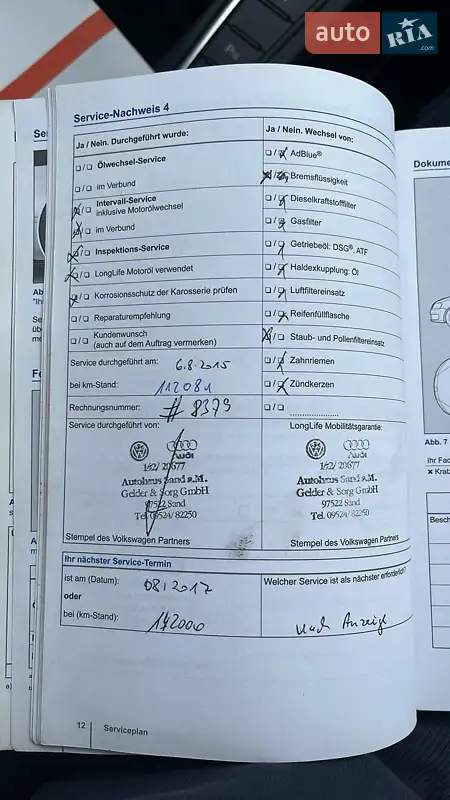 auto RIA.com
Service-Nachweis 4
Ja / Nein. Durchgeführt wurde:
Ja / Nein. Wechsel von:
Ölwechsel-Service
im Verbund
Intervall-Service
inklusive Motorölwechsel
im Verbund
Inspektions-Service
LongLife Motoröl verwendet
Korrosionsschutz der Karosserie prüfen
Reparaturempfehlung
Kundenwunsch
(auch auf dem Auftrag vermerken)
AdBlue®
Bremsflüssigkeit
Dieselkraftstofffilter
Gasfilter
Getriebeöl: DSG®, ATF
Haldexkupplung: Öl
Luftfiltereinsatz
Reifenfüllflasche
Staub- und Pollenfiltereinsatz
Zahnriemen
Zündkerzen
Service durchgeführt am: 6.8.2015
bei km-Stand: 112081
Rechnungsnummer: # 8379
Service durchgeführt von:
Audi
142/ 20677
Autohaus Sand a.M.
Gelder & Sorg GmbH
97522 Sand
Tel. 09524/82250
Stempel des Volkswagen Partners
LongLife Mobilitätsgarantie:
Audi
142/ 20677
Autohaus Sand a.M.
Gelder & Sorg GmbH
97522 Sand
Tel. 09524/82250
Stempel des Volkswagen Partners
Ihr nächster Service-Termin
ist am (Datum): 08/2017
oder
bei (km-Stand): 142000
Welcher Service ist als nächster erforderlich?
nach Anzeige
12 Serviceplan
Dokume
Abb. 7
Ihr Fac
× Kratz
Besch